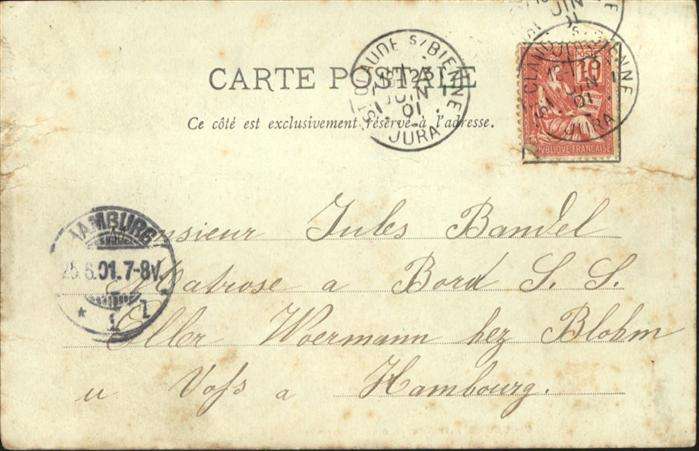 CARTE POSTALE
Ce côté est exclusivement réservé à l'adresse.
ST CLAUDE S/BIENNE
23
JUIN
01
JURA
10
RÉPUBLIQUE FRANÇAISE
HAMBURG
25.6.01.7-8V.
* 1
Monsieur Jules Bandel
Matrose a Bord S. S.
Eller Woermann bez Blohm
u Voss a Hambourg.